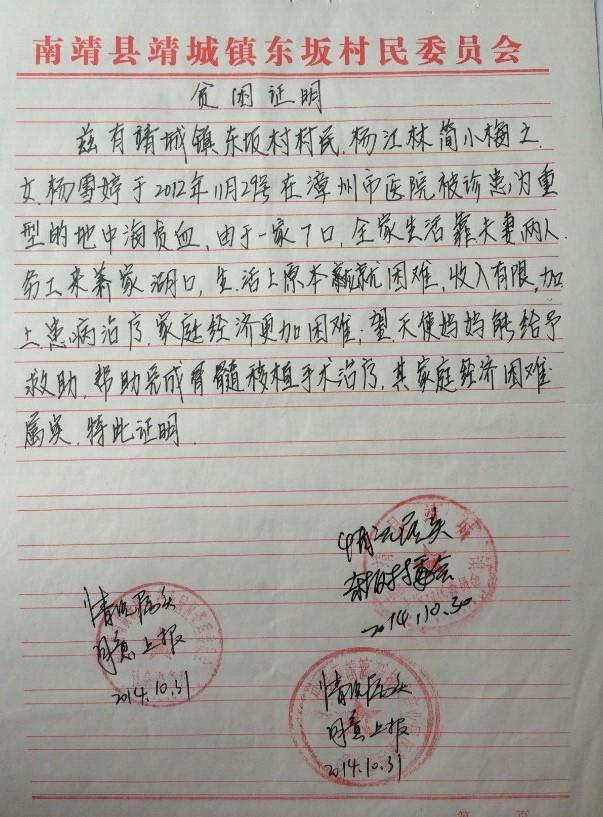 南靖县靖城镇东坂村民委员会
贫困证明
兹有靖城镇东坂村村民,杨江林简小梅之
女.杨雪婷于2012年11月29号在漳州市医院被诊患为重
型的地中海贫血,由于一家7口,全家生活靠夫妻两人
务工来养家湖口,生活上原本就困难,收入有限,加
上患病治疗,家庭经济更加困难;望天使妈妈能给予
救助,帮助完成骨髓移植手术治疗,其家庭经济困难
属实,特此证明.
情况属实
村委会
2014.10.30
情况属实
同意上报
2014.10.31
情况属实
同意上报
2014.10.31
第 页